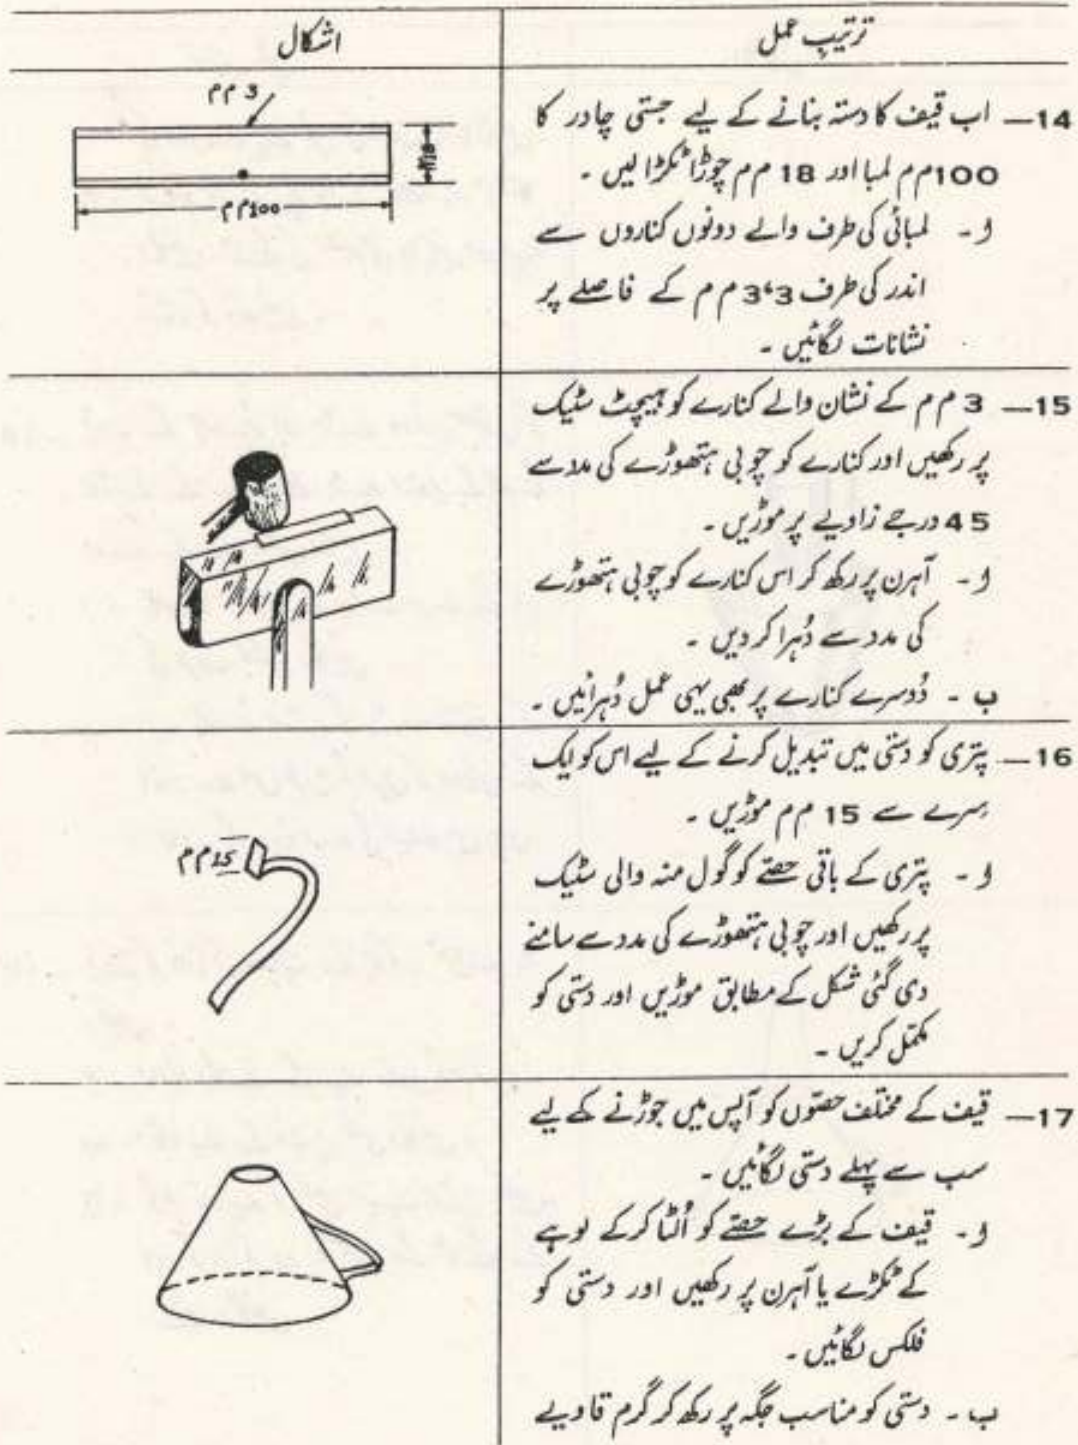 ترتیبِ عمل
اشکال
14— اب قیف کا دستہ بنانے کے لیے جستی چادر کا
100م م لمبا اور 18 م م چوڑا ٹکڑا لیں ۔
ا ۔ لمبائی کی طرف والے دونوں کناروں سے
اندر کی طرف 3،3 م م کے فاصلے پر
نشانات لگائیں ۔
3 م م
18م م
100م م
15— 3 م م کے نشان والے کنارے کو ہیچٹ سٹیک
پر رکھیں اور کنارے کو چوبی ہتھوڑے کی مدد سے
45 درجے زاویے پر موڑیں ۔
ا ۔ آہرن پر رکھ کر اس کنارے کو چوبی ہتھوڑے
کی مدد سے دُہرا کر دیں ۔
ب ۔ دُوسرے کنارے پر بھی یہی عمل دُہرائیں ۔
16— پتری کو دستی میں تبدیل کرنے کے لیے اس کو ایک
سِرے سے 15 م م موڑیں ۔
ا ۔ پتری کے باقی حصّے کو گول منہ والی سٹیک
پر رکھیں اور چوبی ہتھوڑے کی مدد سے سامنے
دی گئی شکل کے مطابق موڑیں اور دستی کو
مکمّل کریں ۔
15م م
17— قیف کے مختلف حصّوں کو آپس میں جوڑنے کے لیے
سب سے پہلے دستی لگائیں ۔
ا ۔ قیف کے بڑے حصّے کو اُلٹا کرکے لوہے
کے ٹکڑے یا آہرن پر رکھیں اور دستی کو
فلکس لگائیں ۔
ب ۔ دستی کو مناسب جگہ پر رکھ کر گرم قاویے